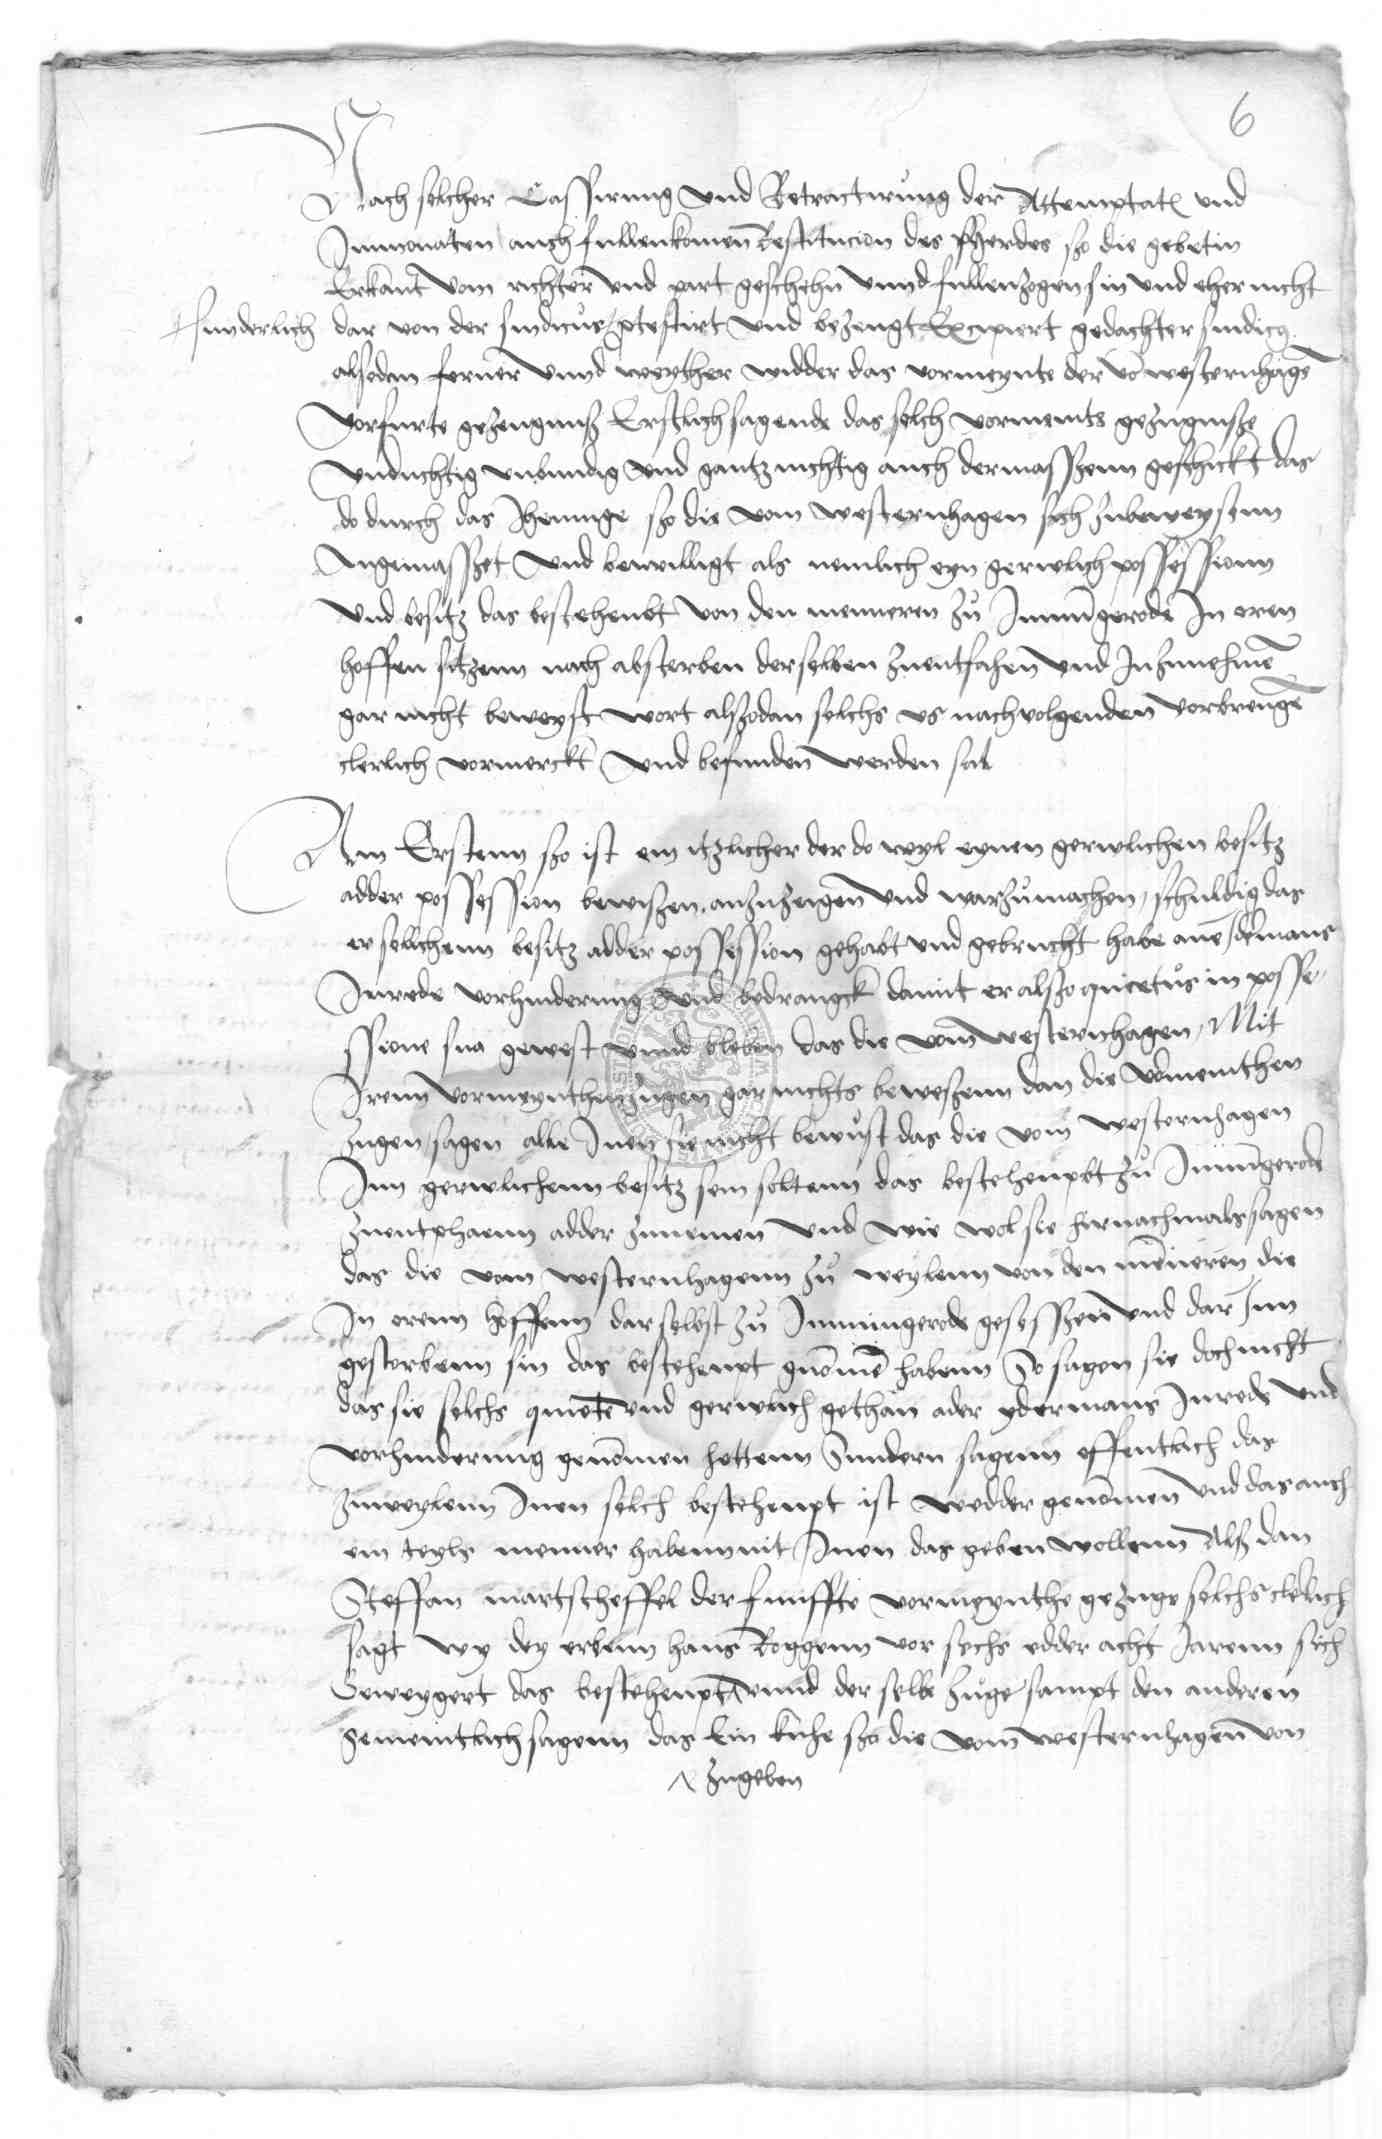 6
Nach solcher Cassirung und Retractirung der Attemptat und
Innonaten auch fullenkomen Restitucion des pferdes szo die gebetin
Erkant vom richter und part geschehn unnd fullenzogen sin und eher nicht
sunderlich dar von der sindicus protestirt und bezeugt Excipiert gedachter sindicus
alsodan ferner unnd weyther widder das vormeynte der vo westernhage
vorfurte gezeugnusz Erstlich sagende das solch vormeints gezugnisze
unduchtig unbundig und gantz nichtig auch dermasszenn geschickt das
do durch das Jhennige szo die vom westernhagen sich zubeweysenn
Angemasszet und bewilligt als nemlich eyn gerwlich possessionn
und besitz das bestehenbt von den menneren zu Immingerode In oren
hoffen sitzenn nach absterben derselben zuentfahen und Inzunehme
gar nicht beweyst wort alszodan solchs us nachvolgenden vorbrenge
clerlich vormerckt und befunden werden sal
Am Erstenn szo ist ein itzlicher der do wyl eynen gerwlichen besitz
adder possession bewiszen anzuzeigen und warzumachen schuldig das
er sollichenn besitz adder possession gehabt und gebrucht habe ane Jdemans
Inrede vorhinderung und bedrangck damit er alszo quietus in posse
ssione sua gewest unnd bleben das die vom westernhagen Mit
Irenn vormeynthen zugen gar nichts beweszenn dan die vormeinthen
zugen sagen alle Inen sie nicht bewust das die vom westernhagen
Inn gerwlichenn besitz sein soltenn das bestehenpbt zu Immingerode
zuentphaenn adder zunemen und wie wol sie hirnachmals sagen
das die vom westernhagenn zu weylenn von den menneren die
In orenn hoffenn dar selbst zu Immingerode gesesszen und dar Inn
gestorbenn sin das bestehenpt gnome habenn So sagen sie doch nicht
das sie solchs quiete und gerwlich gethan ader ydermans Inrede und
vorhinderung genomen hettenn Sundern sagenn offentlich das
zuweylenn Inen solch bestehenpt ist wedder genomen und das auch
ein teyls menner habenn nit Inen das geben wollenn Alsz dan
Steffan martscheffel der funffte vormeynthe gezuge solchs clerlich
sagt wy dey erbenn hans Roggenn vor sechs edder acht Jarenn sich
Geweygert das bestehenpt unnd der selbe zuge sampt den anderen
gemeintlich sagenn das Ein kuhe szo die vom westernhagen von
zugeben